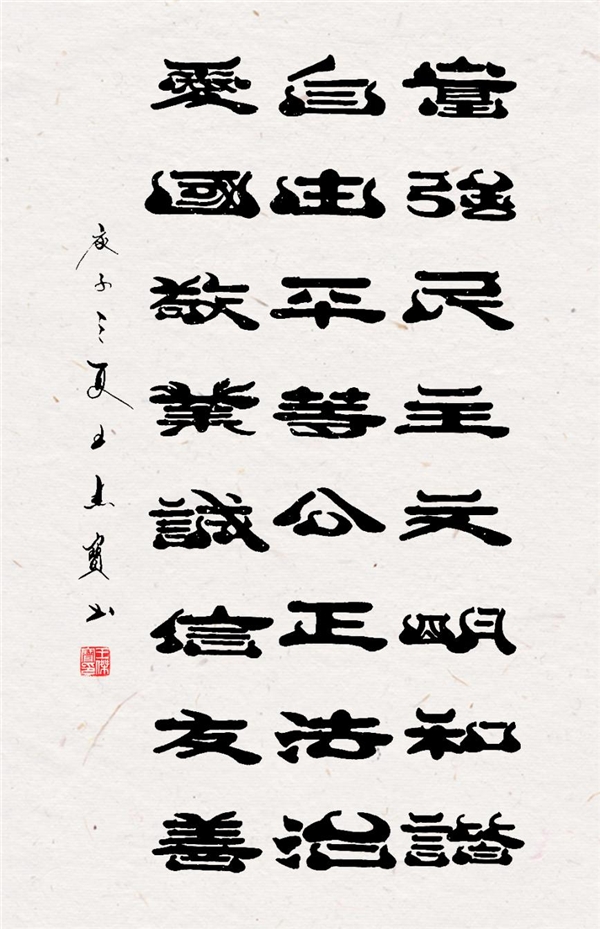 富強民主文明和諧
自由平等公正法治
愛國敬業誠信友善
庚子之夏王杰寶书